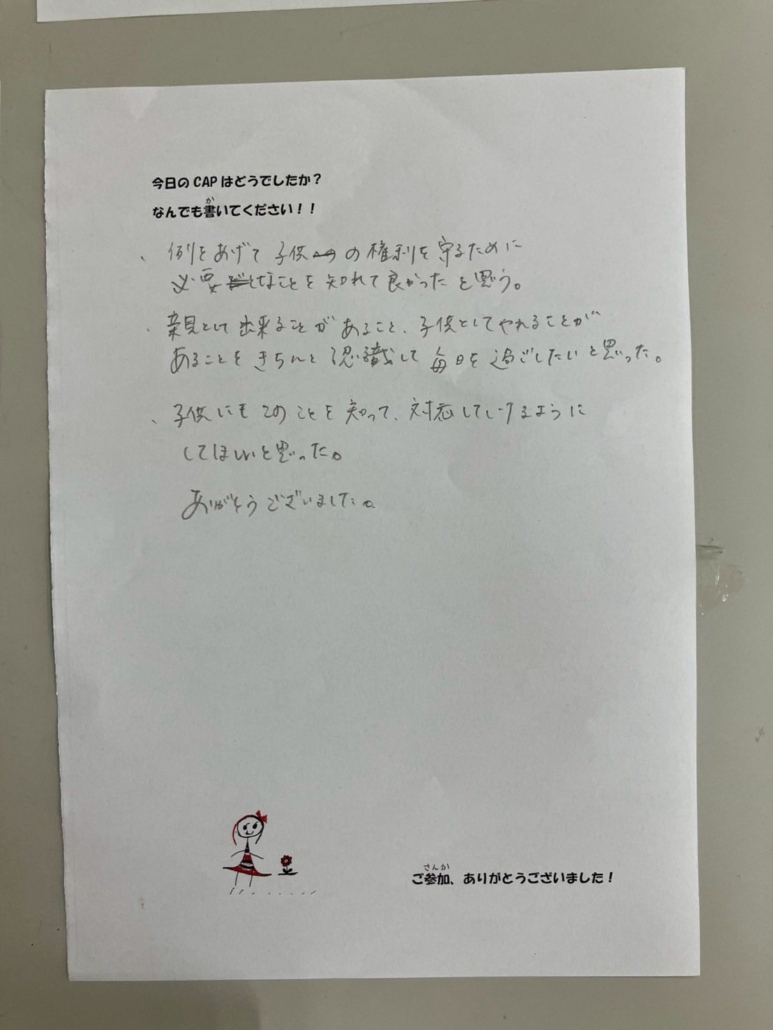 今日のCAPはどうでしたか？
か
なんでも書いてください！！
、例をあげて子供の権利を守るために
必要なことを知れて良かったと思う。
・親として出来ることがあること、子供としてやれることが
あることをきちんと認識して毎日を過ごしたいと思った。
、子供にもこのことを知って、対応していけるように
してほしいと思った。
ありがとうございました。
さんか
ご参加、ありがとうございました！